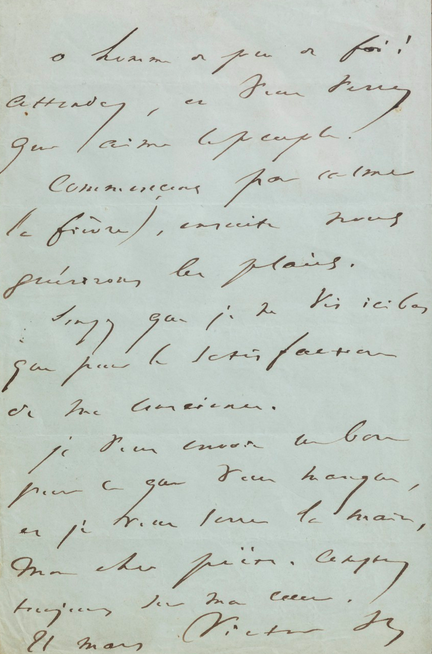 o homme de peu de foi !
attendez, et vous verrez
que j'aime le peuple.
Commençons par calmer
la fièvre, ensuite nous
guérirons les plaies.
Songez que je ne vis ici bas
que pour la satisfaction
de ma conscience.
je vous envoie un bon
pour ce que vous manque,
et je vous serre la main,
Mon cher poëte. Comptez
toujours sur mon cœur.
21 mars Victor H